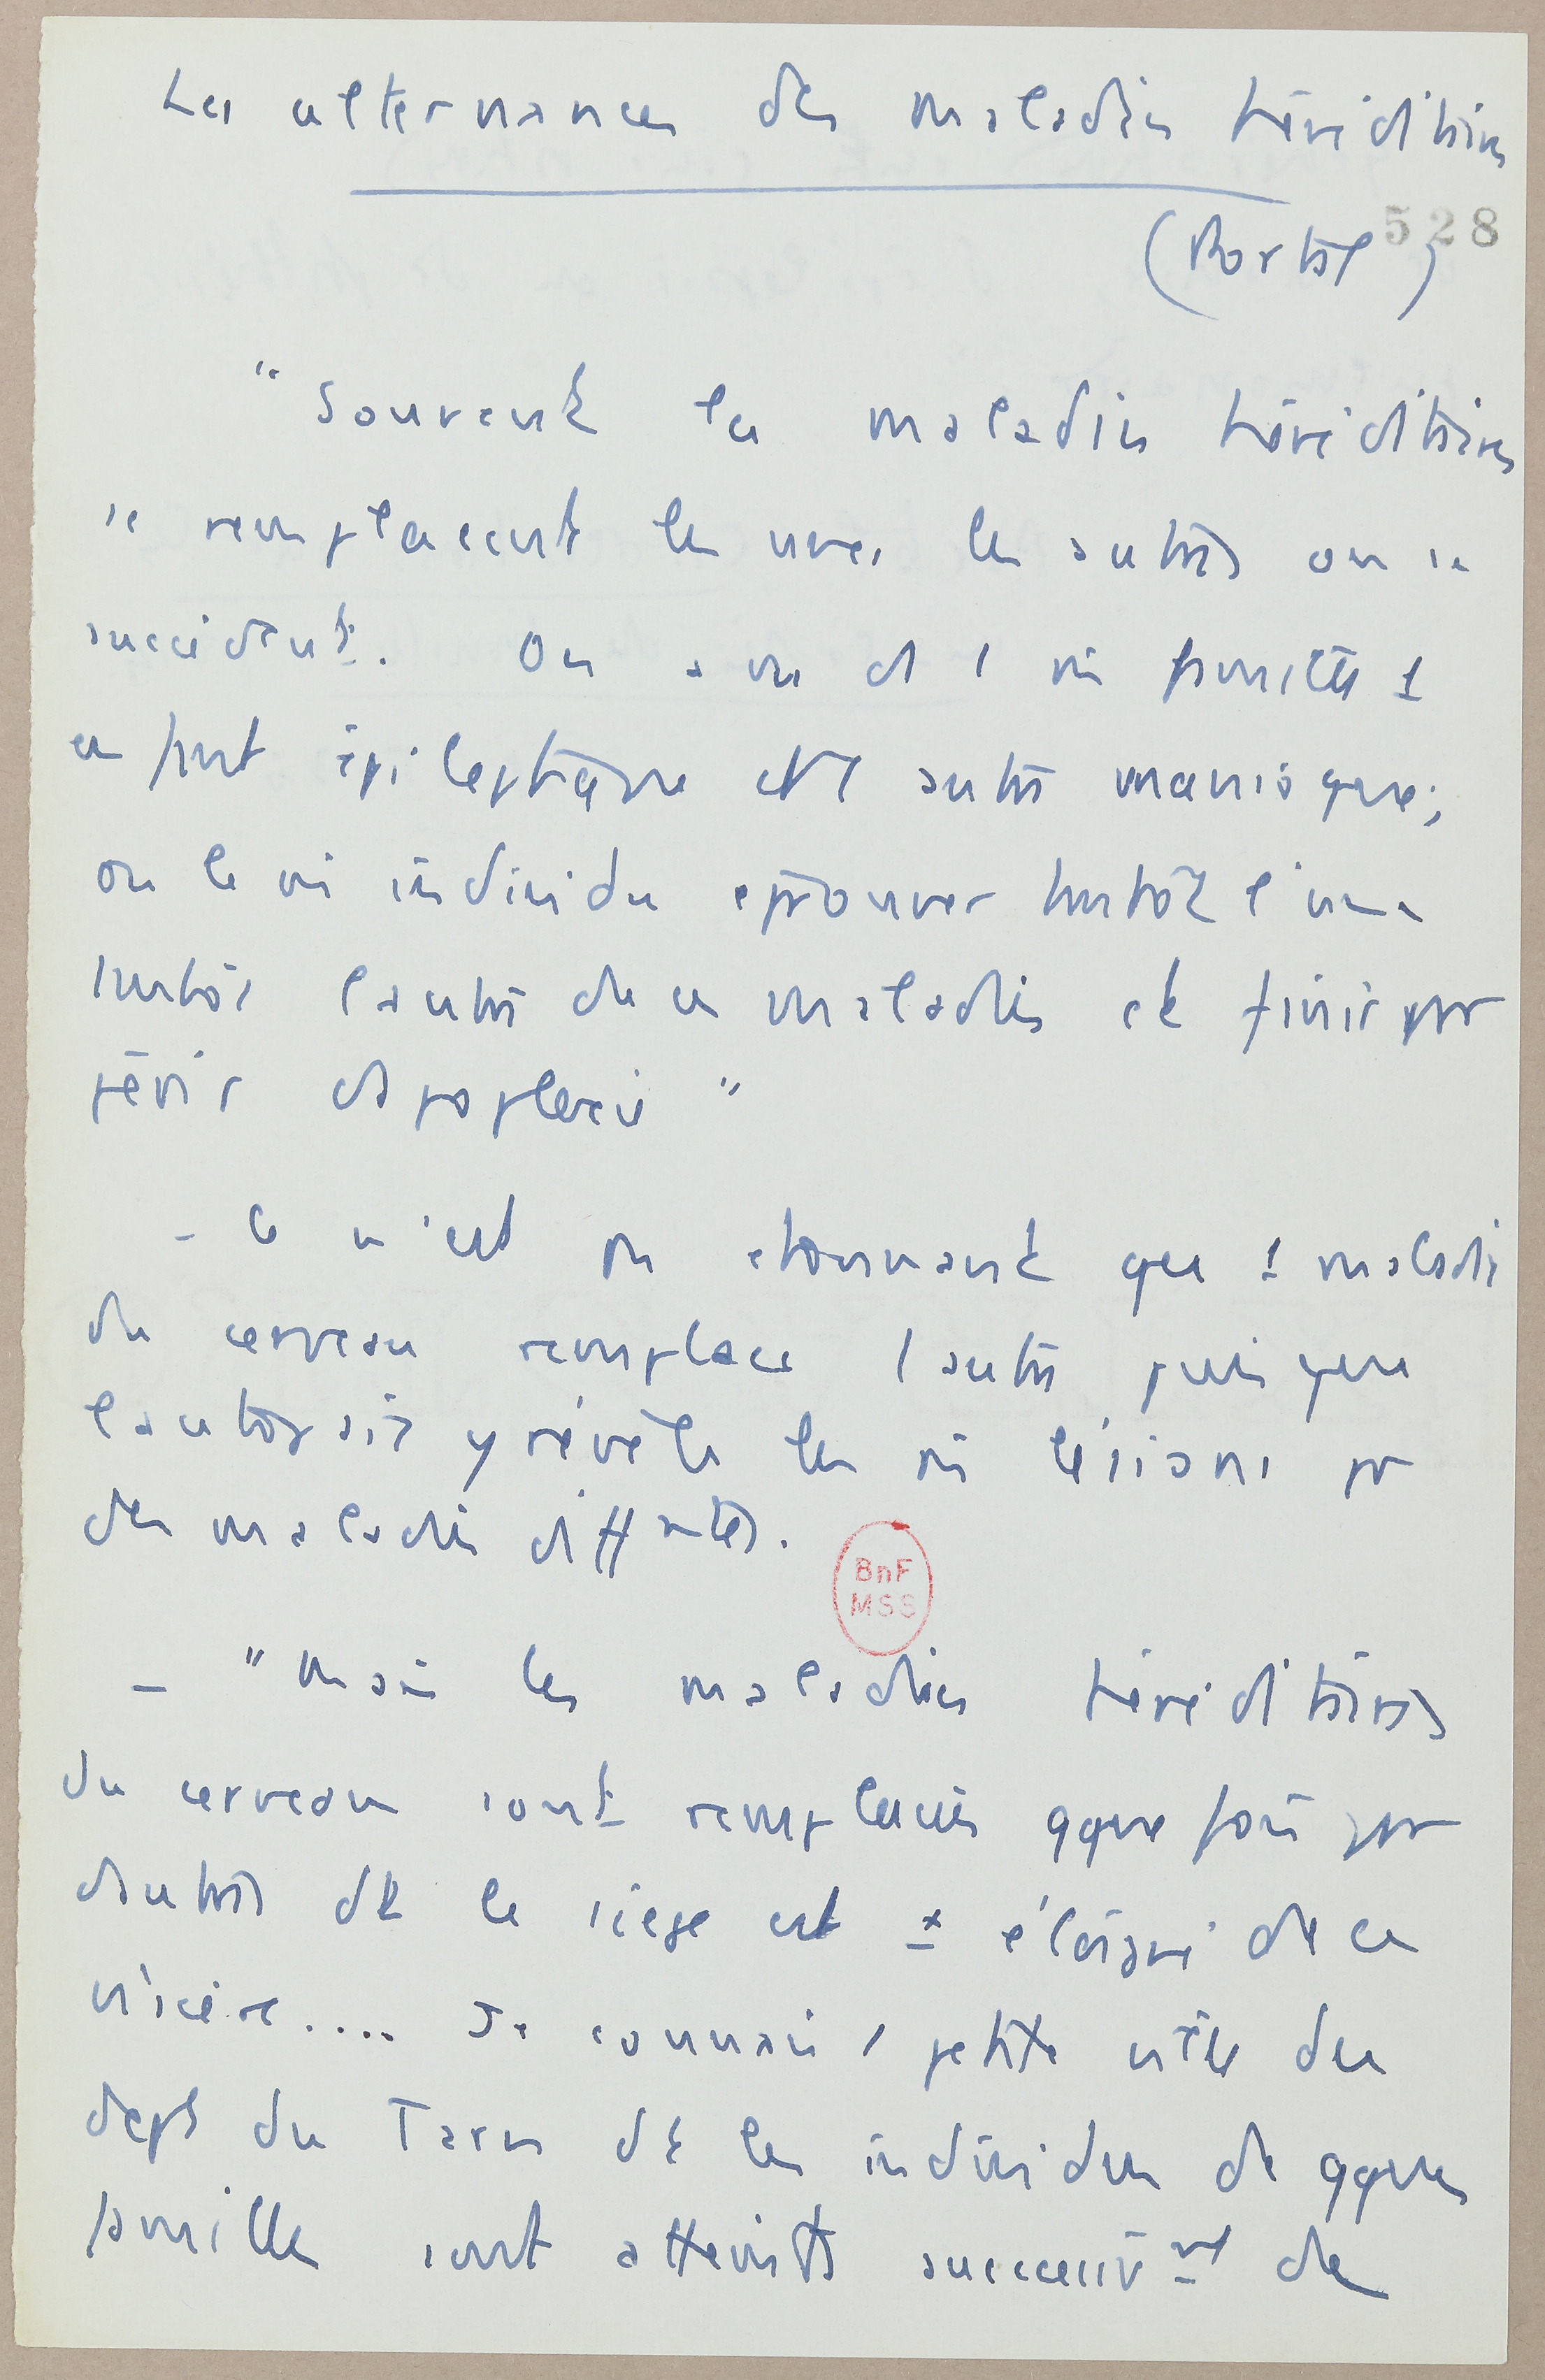 Les alternances des maladies héréditaires
528
(Portal)
"Souvent les maladies héréditaires
se remplacent les unes les autres ou se
succèdent. On a vu ds 1 mê famille 1
enfant épileptique et l'autre maniaque;
ou le mê individu éprouver tantôt l'une
tantôt l'autre de ces maladies et finir par
périr d'apoplexie"
- Ce n'est pas étonnant que 1 maladie
du cerveau remplace l'autre puisque
l'autopsie y révèle les mê lésions pr
des maladies difftes.
- "Mais les maladies héréditaires
du cerveau sont remplacées qquefois par
d'autres dt le siège est + éloigné de ce
viscère.... Je connais 1 petite ville du
dept du Tarn dt les individus de qques
familles sont atteints successivmt de
BnF
MSS